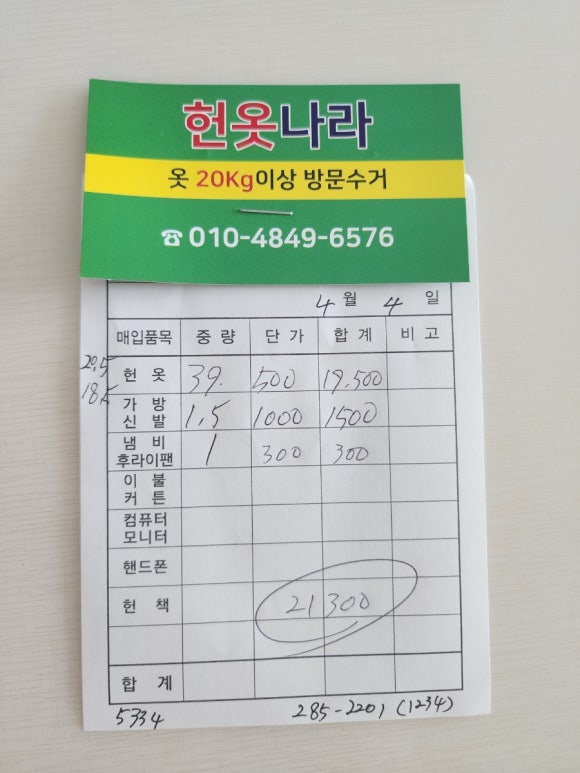 헌옷나라
옷 20Kg이상 방문수거
☎ 010-4849-6576
4월 4일
매입품목 중량 단가 합계 비고
20.5
18.5
헌옷 39. 500 19,500
가방
신발 1.5 1000 1500
냄비
후라이팬 1 300 300
이불
커튼
컴퓨터
모니터
핸드폰
헌책 21300
합계
5334 285-2201 (1234)